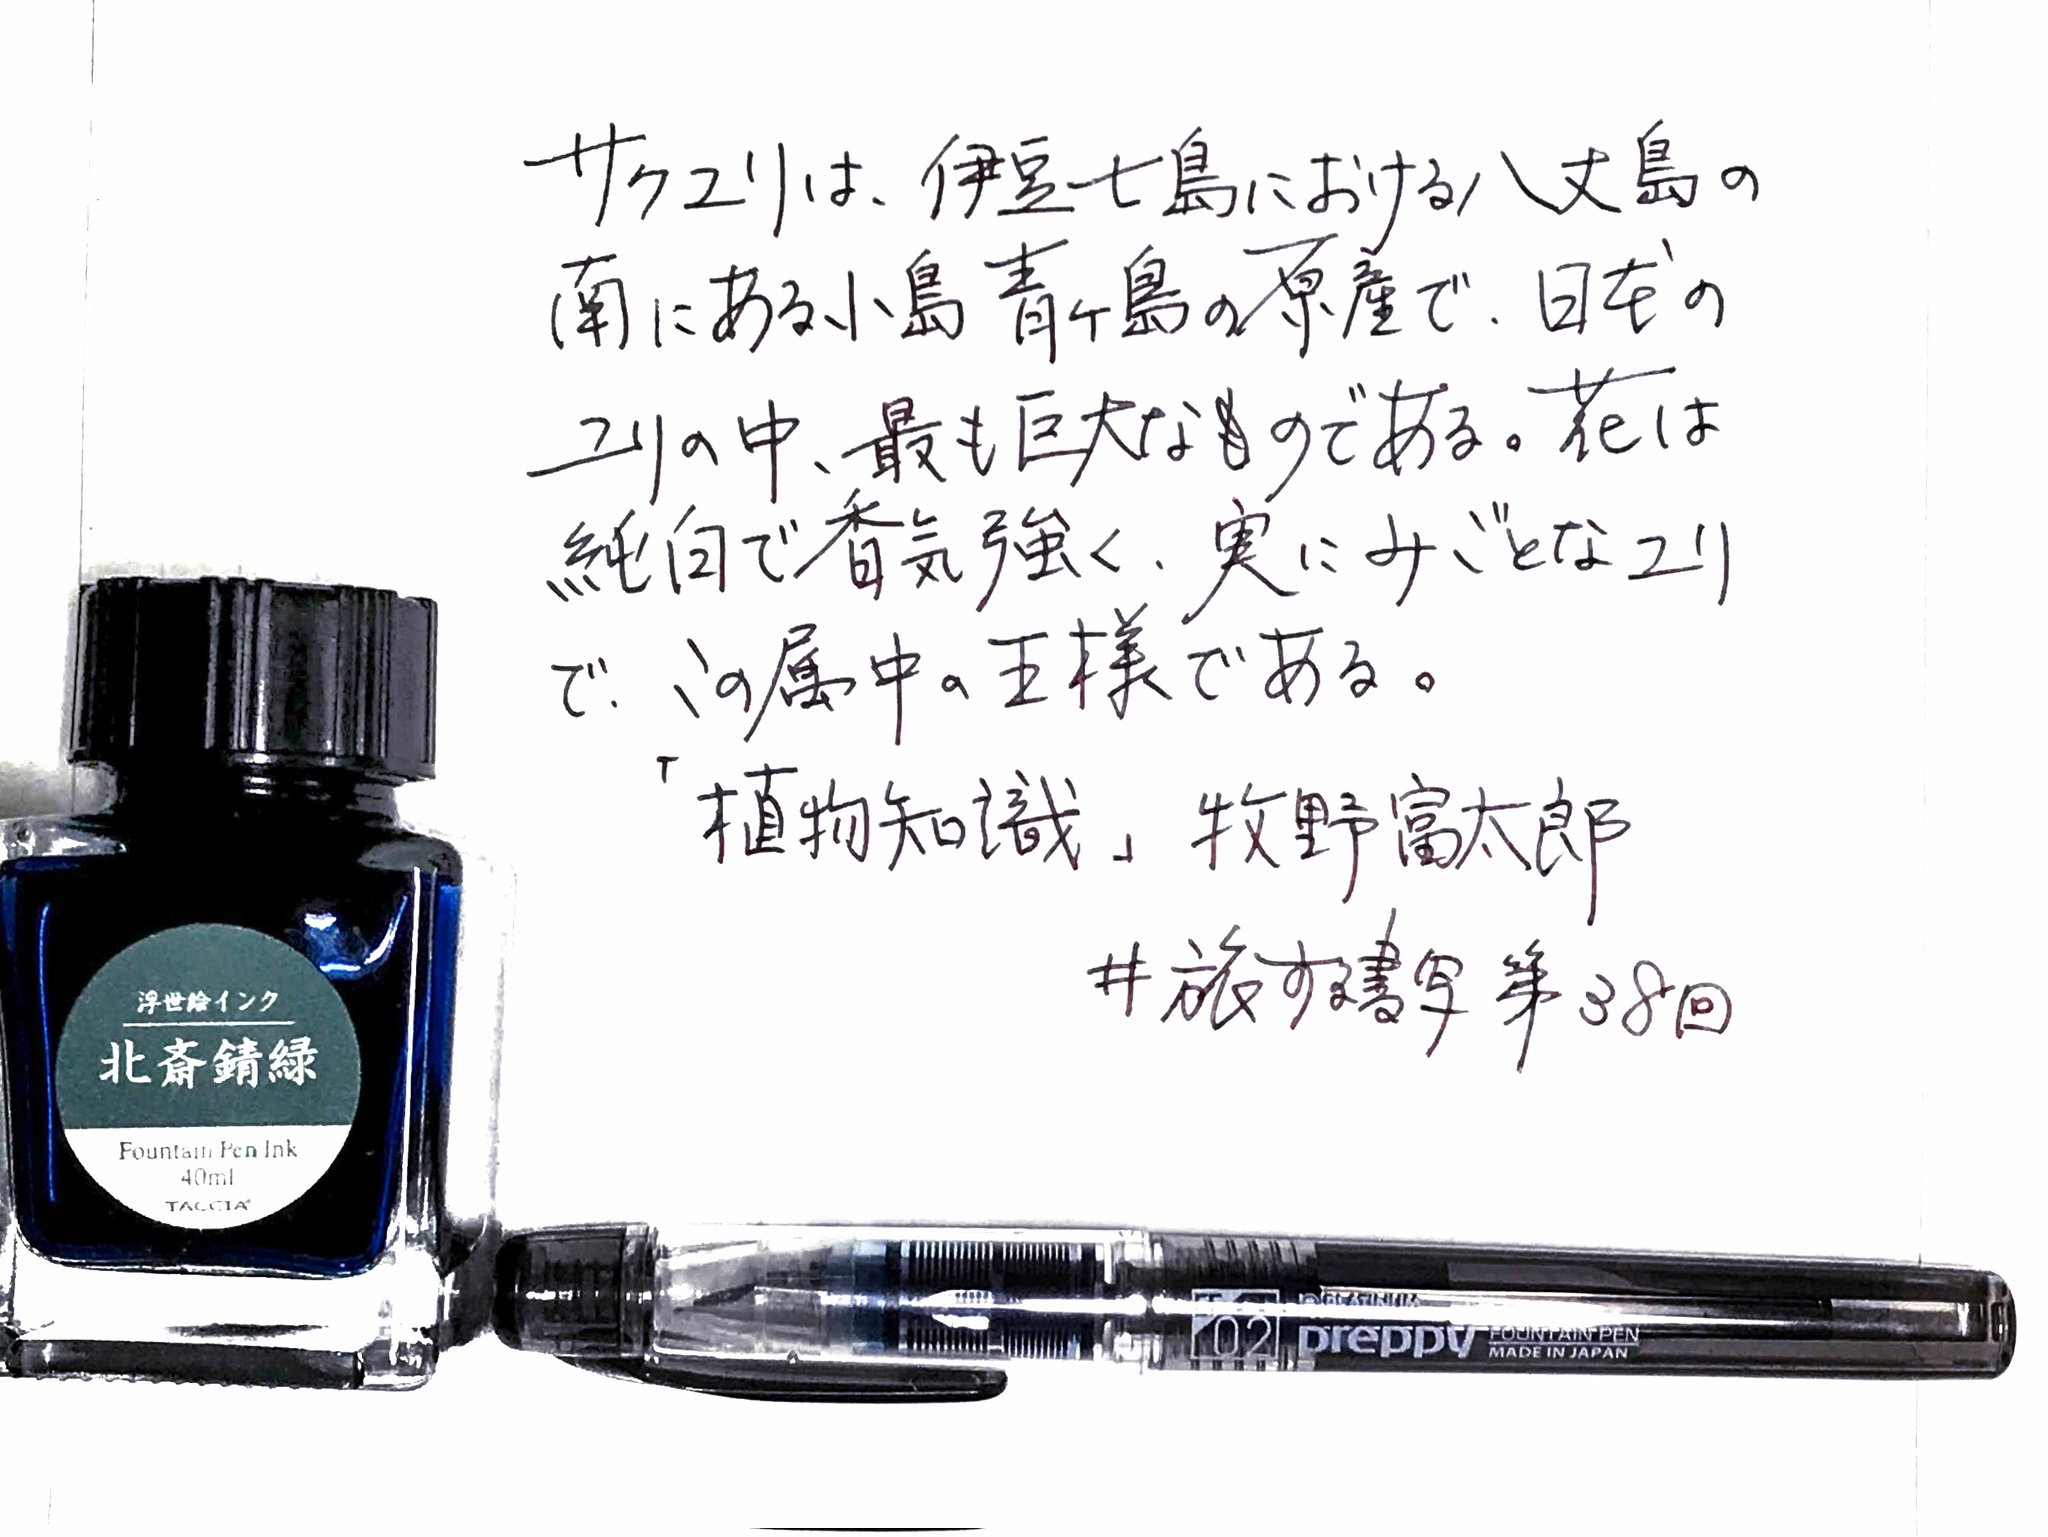 サクユリは、伊豆七島における八丈島の
南にある小島青ヶ島の原産で、日本の
ユリの中、最も巨大なものである。花は
純白で香気強く、実にみごとなユリ
で、この属中の王様である。
「植物知識」牧野富太郎
#旅する書写 第38回
浮世絵インク
北斎錆緑
Fountain Pen Ink
40ml
TACCIA
02
PLATINUM
preppy
FOUNTAIN PEN
MADE IN JAPAN